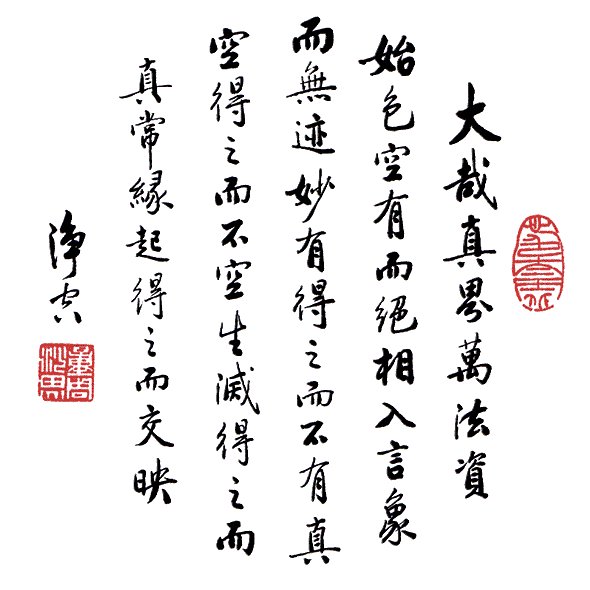 大哉真界萬法資
始色空有而絕相入言象
而無迹妙有得之而不有真
空得之而不空生滅得之而
真常緣起得之而交映
淨空